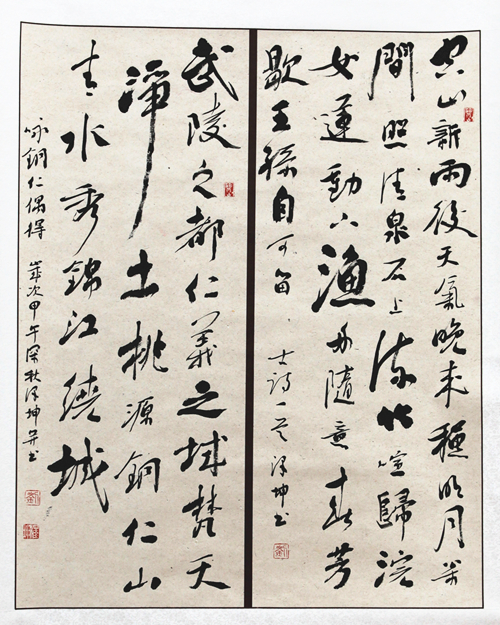 空山新雨後天氣晚来穐明月松
間照清泉石上流竹喧歸浣
女蓮動下漁舟隨意春芳
歇王孫自可留
古詩一首 澤坤书
武陵之都仁義之城梵天
淨土桃源銅仁山
青水秀錦江繞城
咏銅仁偶得 歲次甲午深秋澤坤并书